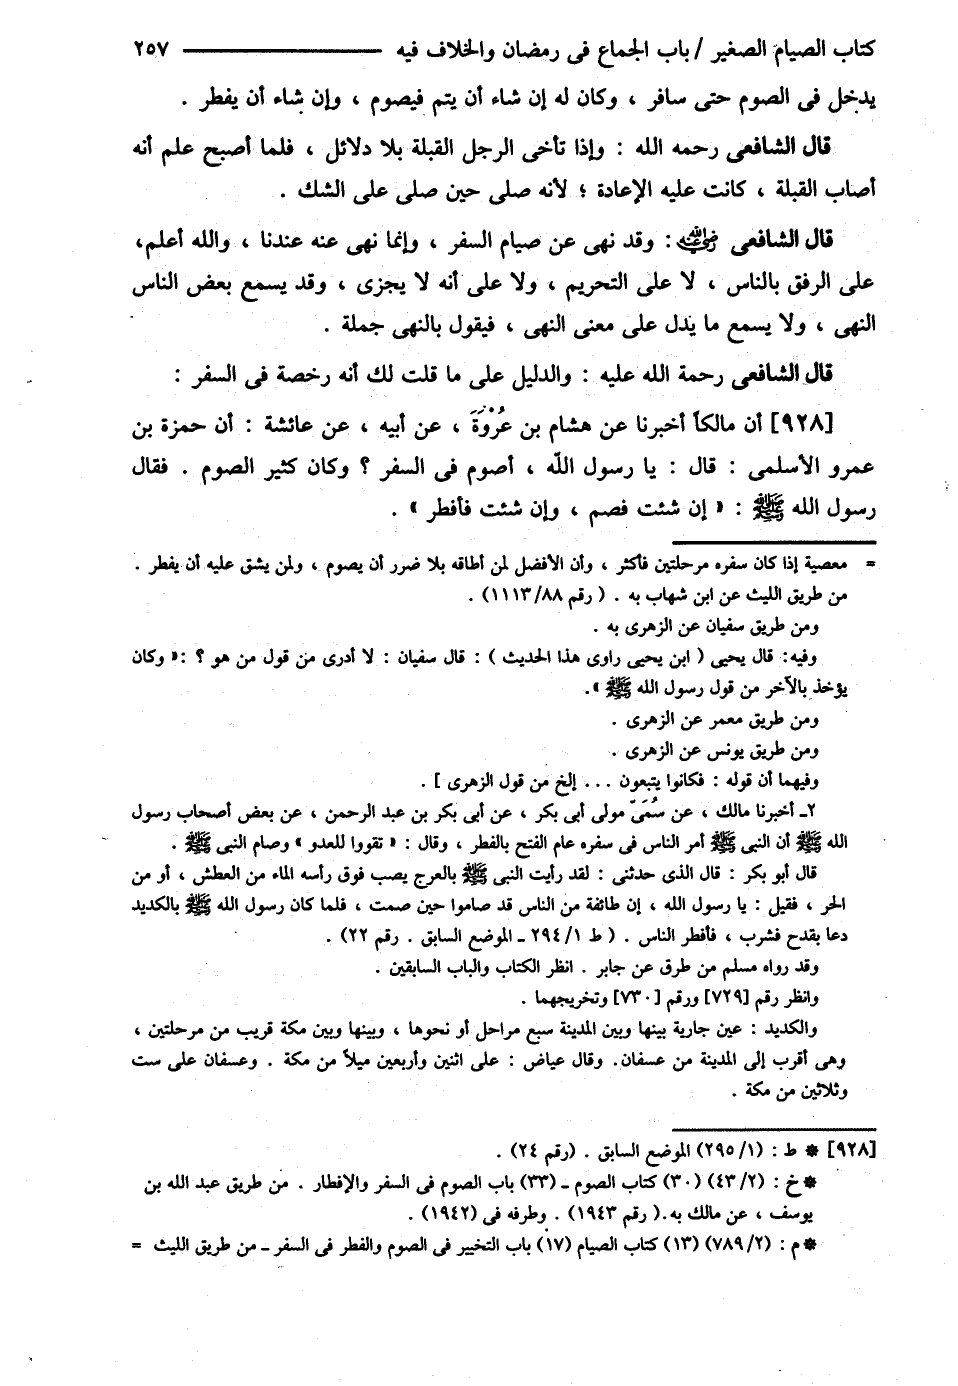 كتاب الصيام الصغير / باب الجماع فى رمضان والخلاف فيه ــــــــــــــــــ ٢٥٧
يدخل فى الصوم حتى سافر ، وكان له إن شاء أن يتم فيصوم ، وإن شاء أن يفطر .
قال الشافعى رحمه الله : وإذا تأخى الرجل القبلة بلا دلائل ، فلما أصبح علم أنه
أصاب القبلة ، كانت عليه الإعادة ؛ لأنه صلى حين صلى على الشك .
قال الشافعى رضي الله عنه : وقد نهى عن صيام السفر ، وإنما نهى عنه عندنا ، والله أعلم،
على الرفق بالناس ، لا على التحريم ، ولا على أنه لا يجزى ، وقد يسمع بعض الناس
النهى ، ولا يسمع ما يدل على معنى النهى ، فيقول بالنهى جملة .
قال الشافعى رحمة الله عليه : والدليل على ما قلت لك أنه رخصة فى السفر :
[٩٢٨] أن مالكاً أخبرنا عن هشام بن عُرْوَةَ ، عن أبيه ، عن عائشة : أن حمزة بن
عمرو الأسلمى : قال : يا رسول الله ، أصوم فى السفر ؟ وكان كثير الصوم . فقال
رسول الله ﷺ : « إن شئت فصم ، وإن شئت فأفطر » .
= معصية إذا كان سفره مرحلتين فأكثر ، وأن الأفضل لمن أطاقه بلا ضرر أن يصوم ، ولمن يشق عليه أن يفطر .
من طريق الليث عن ابن شهاب به . ( رقم ١١١٣/٨٨) .
ومن طريق سفيان عن الزهرى به .
وفيه: قال يحيى ( ابن يحيى راوى هذا الحديث ) : قال سفيان : لا أدرى من قول من هو ؟ :« وكان
يؤخذ بالآخر من قول رسول الله ﷺ ».
ومن طريق معمر عن الزهرى .
ومن طريق يونس عن الزهرى .
وفيهما أن قوله : فكانوا يتبعون ... إلخ من قول الزهرى ] .
٢ـ أخبرنا مالك ، عن سُمَىّ مولى أبى بكر ، عن أبى بكر بن عبد الرحمن ، عن بعض أصحاب رسول
الله ﷺ أن النبى ﷺ أمر الناس فى سفره عام الفتح بالفطر ، وقال : « تقووا للعدو » وصام النبى ﷺ .
قال أبو بكر : قال الذى حدثنى : لقد رأيت النبى ﷺ بالعرج يصب فوق رأسه الماء من العطش ، أو من
الحر ، فقيل : يا رسول الله ، إن طائفة من الناس قد صاموا حين صمت ، فلما كان رسول الله ﷺ بالكديد
دعا بقدح فشرب ، فأفطر الناس . ( ط ٢٩٤/١ ـ الموضع السابق . رقم ٢٢) .
وقد رواه مسلم من طرق عن جابر . انظر الكتاب والباب السابقين .
وانظر رقم [٧٢٩] ورقم [٧٣٠] وتخريجهما .
والكديد : عين جارية بينها وبين المدينة سبع مراحل أو نحوها ، وبينها وبين مكة قريب من مرحلتين ،
وهى أقرب إلى المدينة من عسفان. وقال عياض : على اثنين وأربعين ميلاً من مكة . وعسفان على ست
وثلاثين من مكة .
[٩٢٨] * ط : (٢٩٥/١) الموضع السابق . (رقم ٢٤) .
* خ : (٤٣/٢) (٣٠) كتاب الصوم ـ (٣٣) باب الصوم فى السفر والإفطار . من طريق عبد الله بن
يوسف ، عن مالك به.( رقم ١٩٤٣) . وطرفه فى (١٩٤٢) .
* م : (٧٨٩/٢) (١٣) كتاب الصيام (١٧) باب التخيير فى الصوم والفطر فى السفر ـ من طريق الليث =